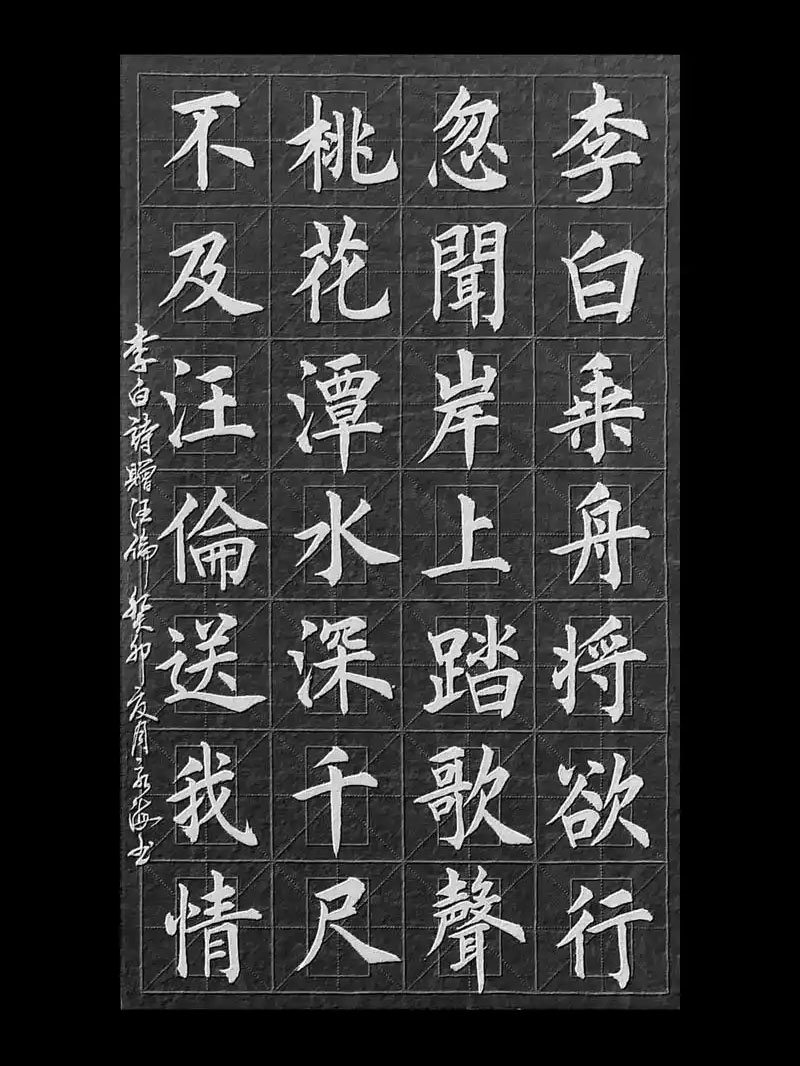 李白乗舟将欲行
忽聞岸上踏歌聲
桃花潭水深千尺
不及汪倫送我情
李白詩贈汪倫癸卯夏周永海书